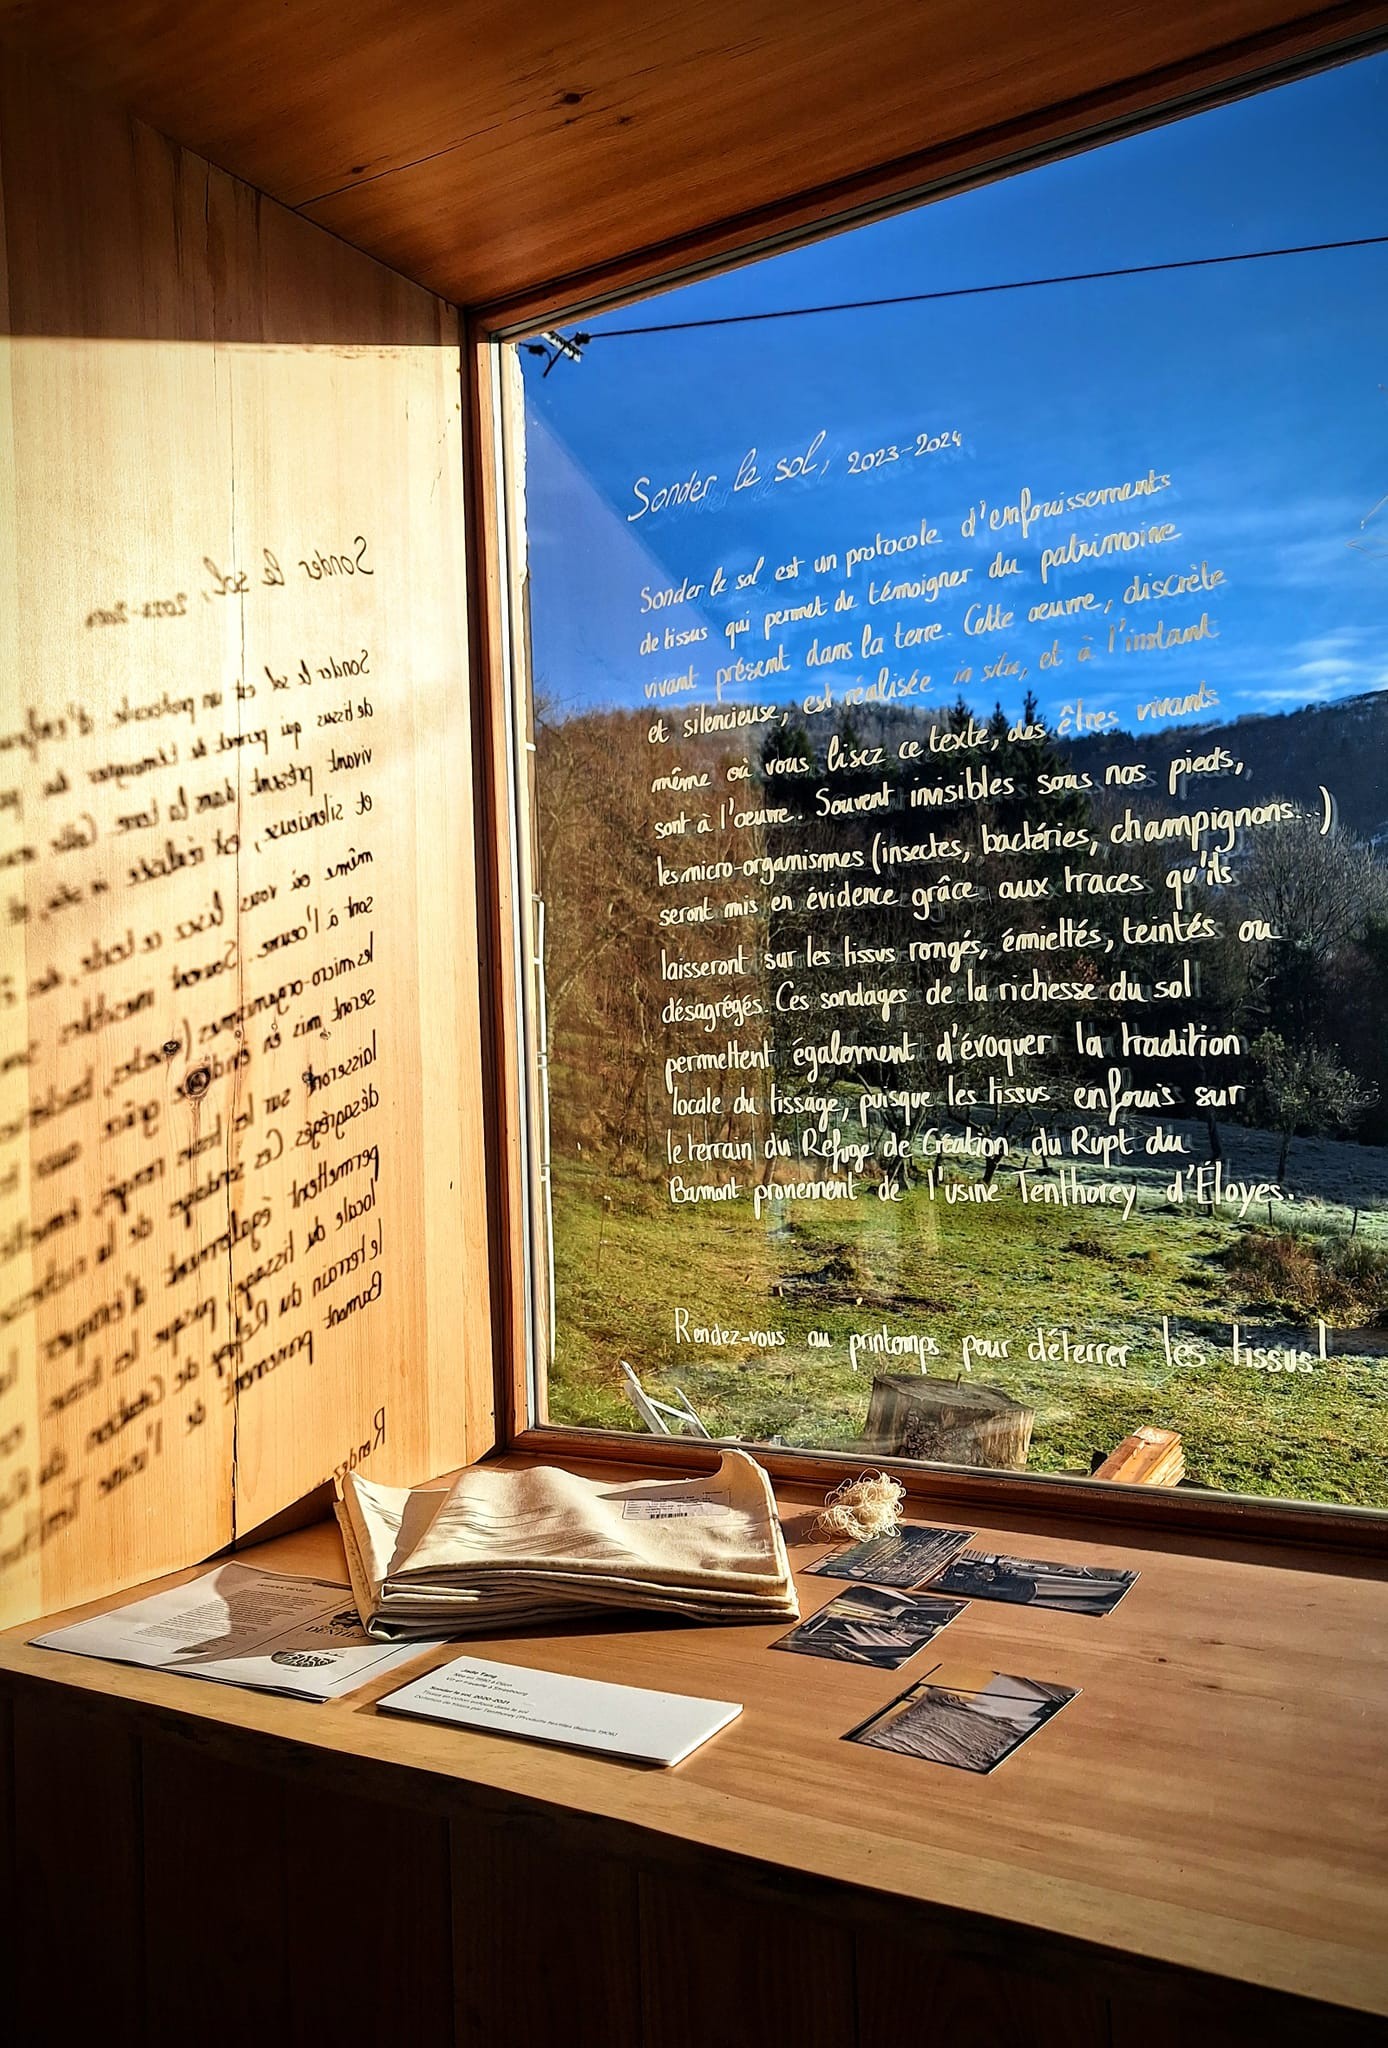 Sonder le sol, 2023-2024
Sonder le sol est un protocole d'enfouissements
de tissus qui permet de témoigner du patrimoine
vivant présent dans la terre. Cette œuvre, discrète
et silencieuse, est réalisée in situ, et à l'instant
même où vous lisez ce texte, des êtres vivants
sont à l'œuvre. Souvent invisibles sous nos pieds,
les micro-organismes (insectes, bactéries, champignons...)
seront mis en évidence grâce aux traces qu'ils
laisseront sur les tissus rongés, émiettés, teintés ou
désagrégés. Ces sondages de la richesse du sol
permettent également d'évoquer la tradition
locale du tissage, puisque les tissus enfouis sur
le terrain du Refuge de Création du Rupt du
Bamont proviennent de l'usine Tenthorey d'Éloyes.
Rendez-vous au printemps pour déterrer les tissus!
Jade Tang
Née en 1990 à Dijon
Vit et travaille à Strasbourg
Sonder le sol, 2020-2021
Tissus en coton enfouis dans le sol